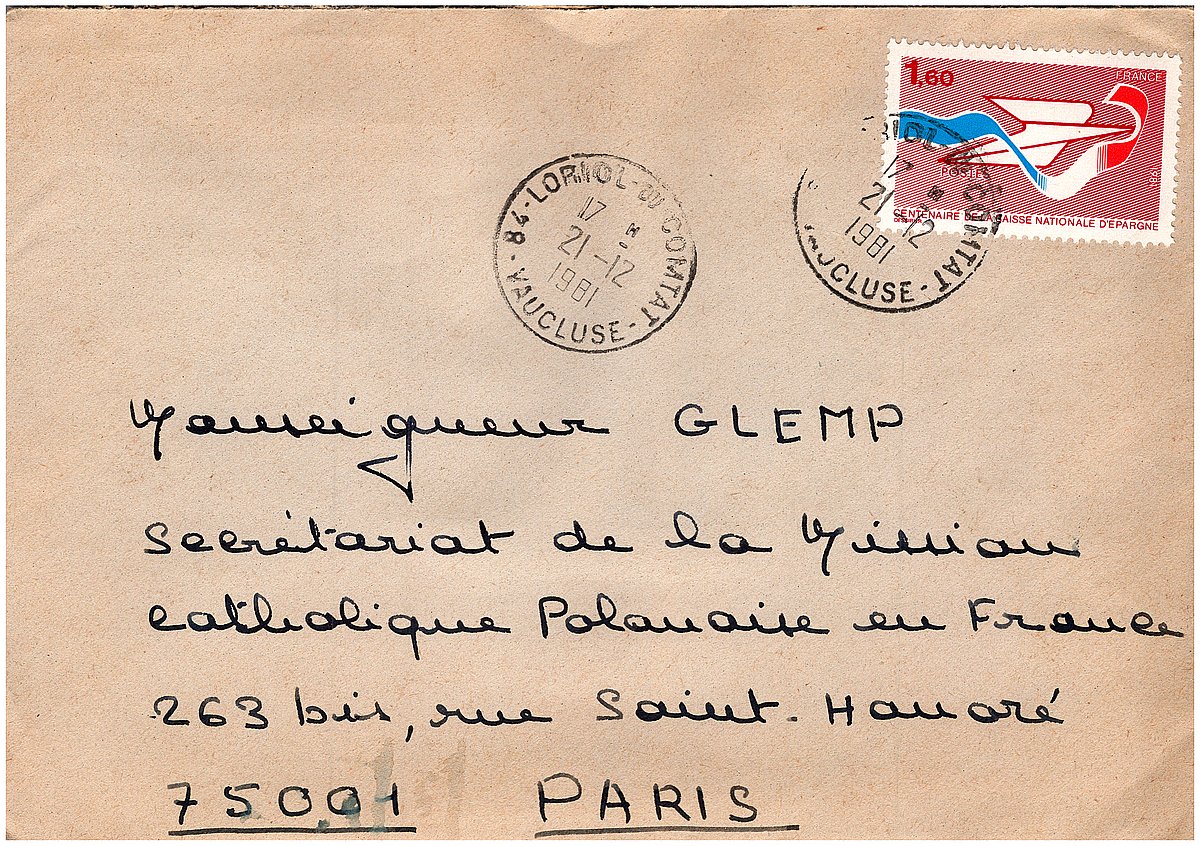 1,60
FRANCE
POSTES
1981
CENTENAIRE DE LA CAISSE NATIONALE D'EPARGNE
84-LORIOL-DU COMTAT
17 H
21-12
1981
VAUCLUSE-
RIOL-DU COMTAT
17 H
21-12
1981
VAUCLUSE-
Monseigneur GLEMP
Secrétariat de la Mission
catholique Polonaise en France
263 bis, rue Saint-Honoré
75001 PARIS